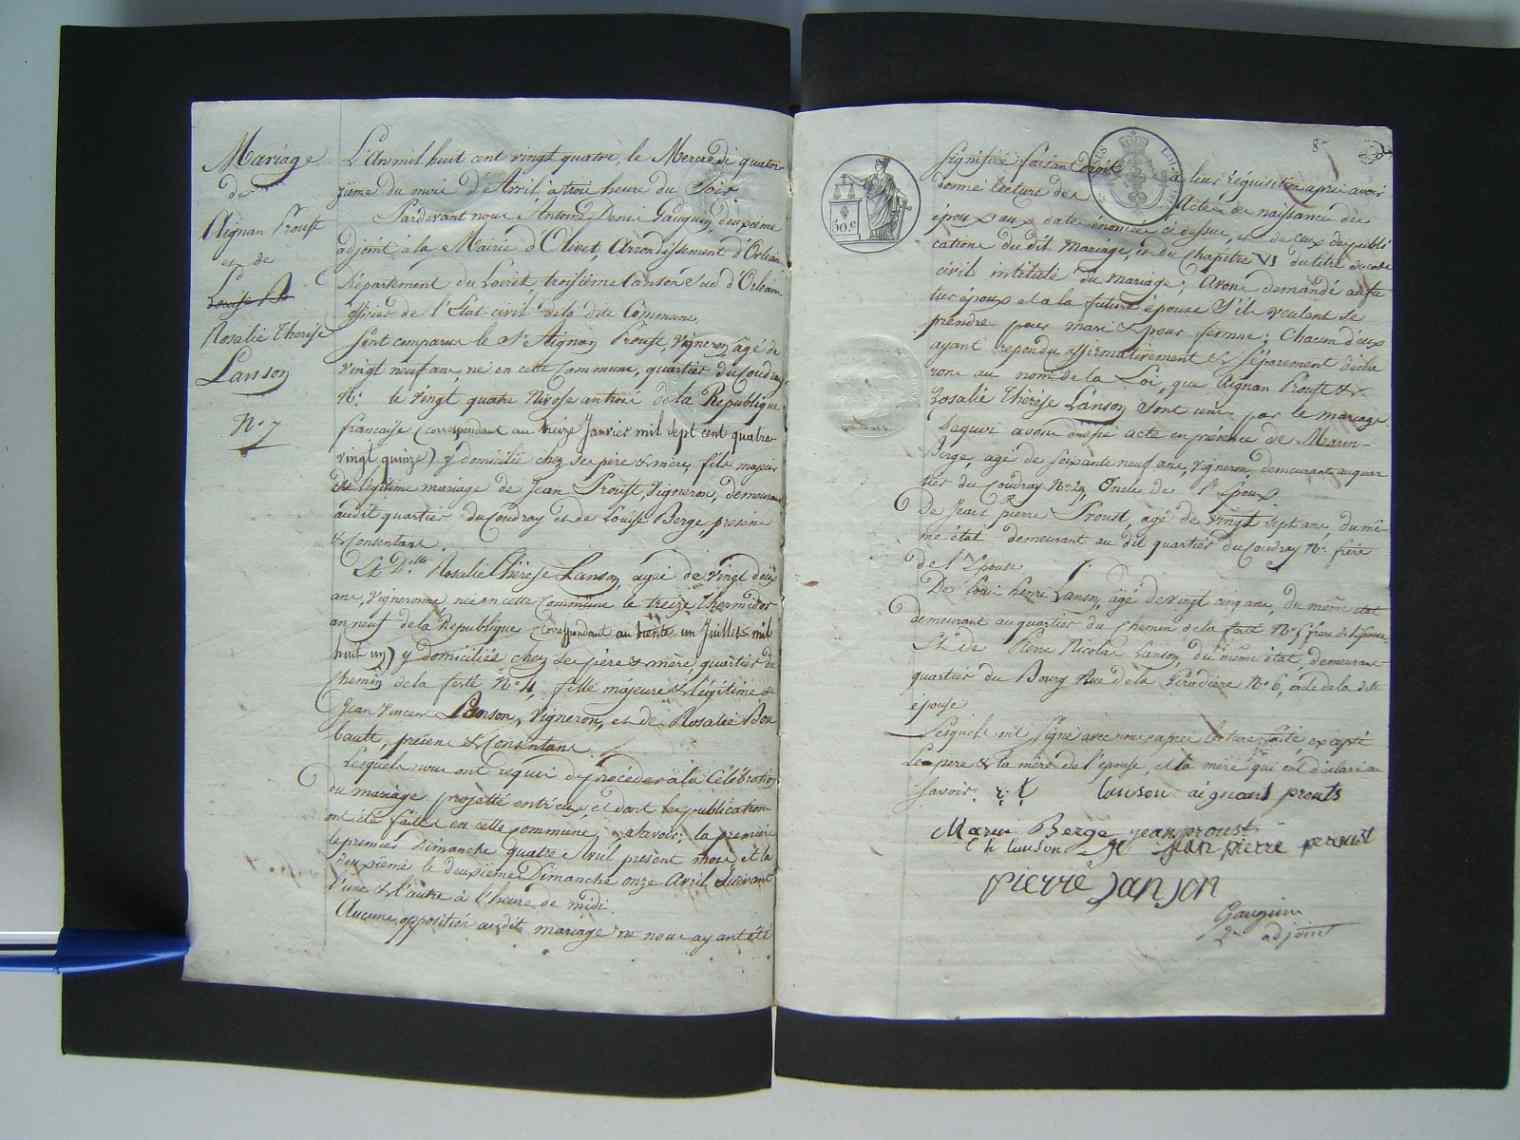 Mariage
de
Aignan Proust
et de
Dlle
Rosalie Thérèse
Lanson
N.º 7
L'An mil huit cent vingt quatre, le Mercredi quator-
zième du mois d'Avril à trois heure du Soir
Pardevant nous Antoine Denis Gauguin, deuxieme
adjoint à la Mairie d'Olivet, Arrondissement d'Orléans
Département du Loiret, troisième Canton Sud d'Orléans
officier de l'Etat civil de la dite Commune,
Sont comparus le Sr Aignan Proust, Vigneron, âgé de
vingt neuf ans né en cette Commune, quartier du Coudray
N.º le vingt quatre Nivose an trois de la République
française (correspondant au treize Janvier mil sept cent quatre-
vingt quinze) y domicilié chez ses père & mère, fils majeur
& légitime mariage de Jean Proust, Vigneron, demeurant
audit quartier du Coudray et de Louise Berge, présens
& Consentans.
Et Dlle Rosalie Thérèse Lanson, agée de vingt deux
ans, Vigneronne née en cette Commune le treize Thermidor
an neuf de la République (correspondant au trente un Juillet mil
huit un) y domiciliée chez ses père & mère, quartier du
Chemin de la ferté N.º 4, fille majeure & légitime de
Jean Vincent Lanson, Vigneron, et de Rosalie Bon
bault, présens & Consentans.
Lesquels nous ont requis de procéder à la Célébration
du mariage projetté entr'eux, et dont les publications
ont été faites en cette commune; savoir: la première
le premier Dimanche quatre Avril présent mois, et la
deuxième le deuxième Dimanche onze Avril suivant
l'une & l'autre à l'heure de midi.
Aucune opposition audit mariage ne nous ayant été
8
50 c
Signifiée faisant droit à leur réquisition après avoir
donné lecture des Actes de naissance des
époux aux dates énoncées ci dessus, et de ceux des publi
cations du dit mariage, et du Chapitre VI du titre du code
civil intitulé du mariage; Avons demandé au fu
tur époux et a la future épouse S'ils veulent se
prendre pour mari & pour femme; Chacun d'eux
ayant repondu affirmativement & séparement décla
rons au nom de la Loi, que Aignan Proust &
Rosalie Thérèse Lanson sont unis par le mariage
Dequoi avons dressé acte en présence de Marin
Berge, agé de soixante neuf ans, Vigneron, demeurant au quar
tier du Coudray N.º 29, Oncle de l'Epoux
De Jean pierre Proust, agé de vingt sept ans, du mê-
me état demeurant au dit quartier du Coudray N.º frère
de l'Epoux
De Louis henri Lanson, âgé de vingt cinq ans, du même état
demeurant au quartier du Chemin de la ferté N.º frère de l'épouse
Et de Pierre Nicolas Lanson, du même état, demeurant
quartier du Bourg Rue de la N.º 6, oncle de la dite
épouse
Lesquels ont signé avec nous après lecture faite excepté
Le père & la mère de l'épouse, et la mère qui ont déclaré ne
savoir. Lanson aignans prouts
Marin Berge jean proust
Lanson jean pierre prouust
pierre Lanson
Gauguin
2e adjoint